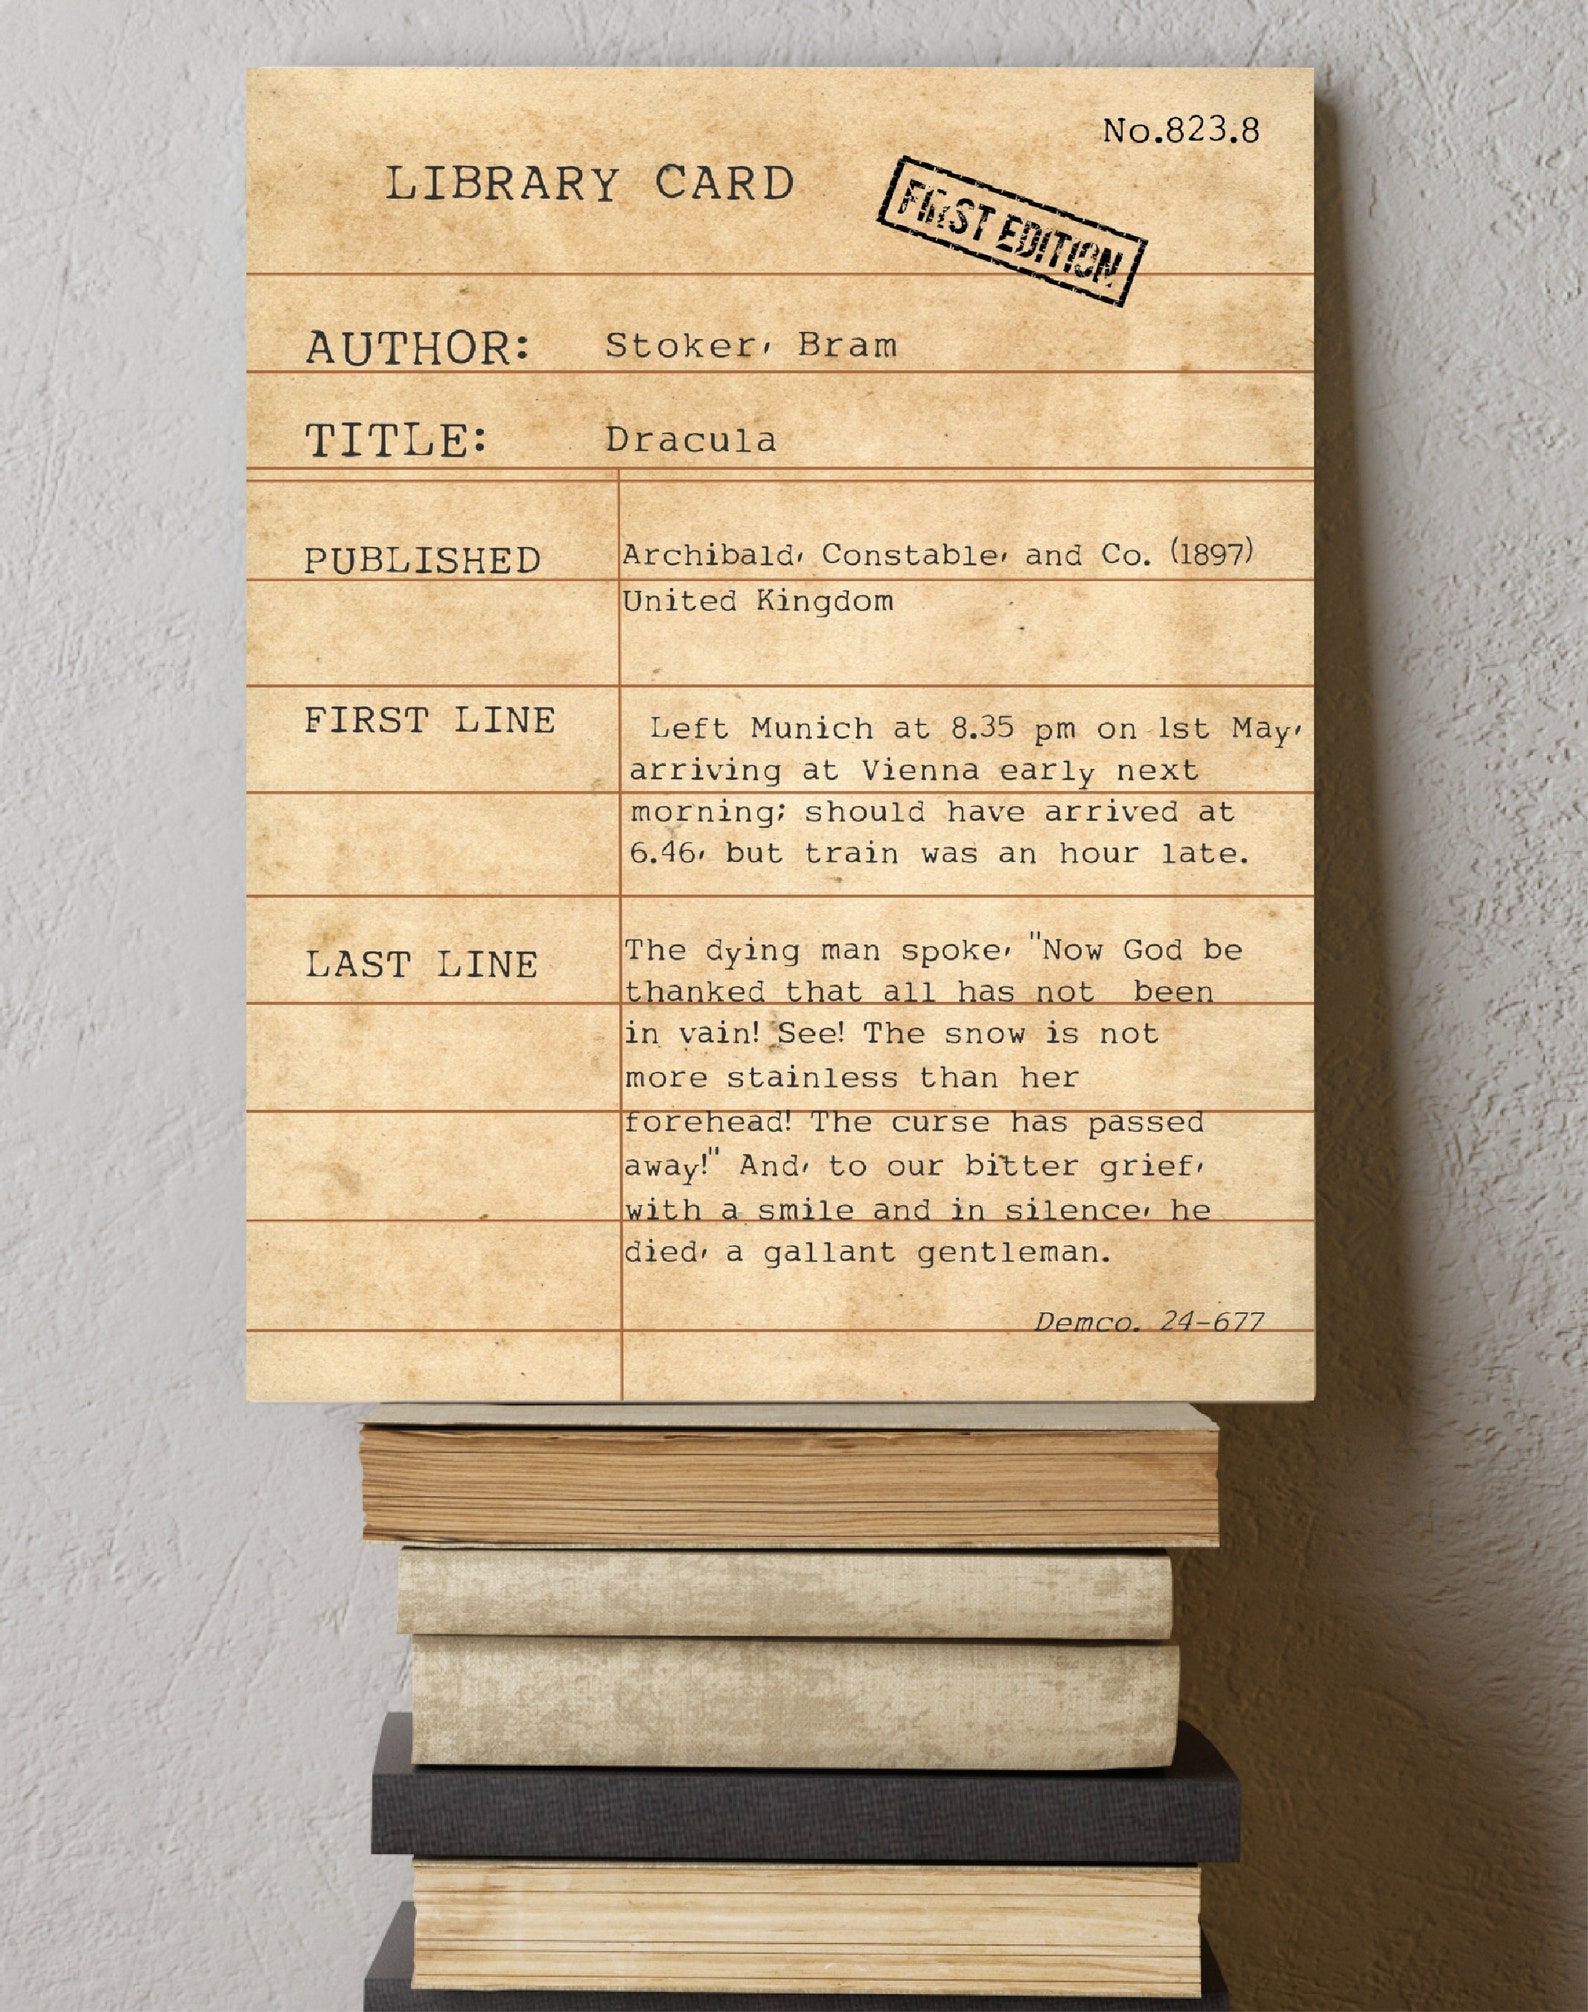 No.823.8
LIBRARY CARD
FIRST EDITION
AUTHOR: Stoker, Bram
TITLE: Dracula
PUBLISHED Archibald, Constable, and Co. (1897)
United Kingdom
FIRST LINE Left Munich at 8.35 pm on 1st May,
arriving at Vienna early next
morning; should have arrived at
6.46, but train was an hour late.
LAST LINE The dying man spoke, "Now God be
thanked that all has not been
in vain! See! The snow is not
more stainless than her
forehead! The curse has passed
away!" And, to our bitter grief,
with a smile and in silence, he
died, a gallant gentleman.
Demco. 24-677